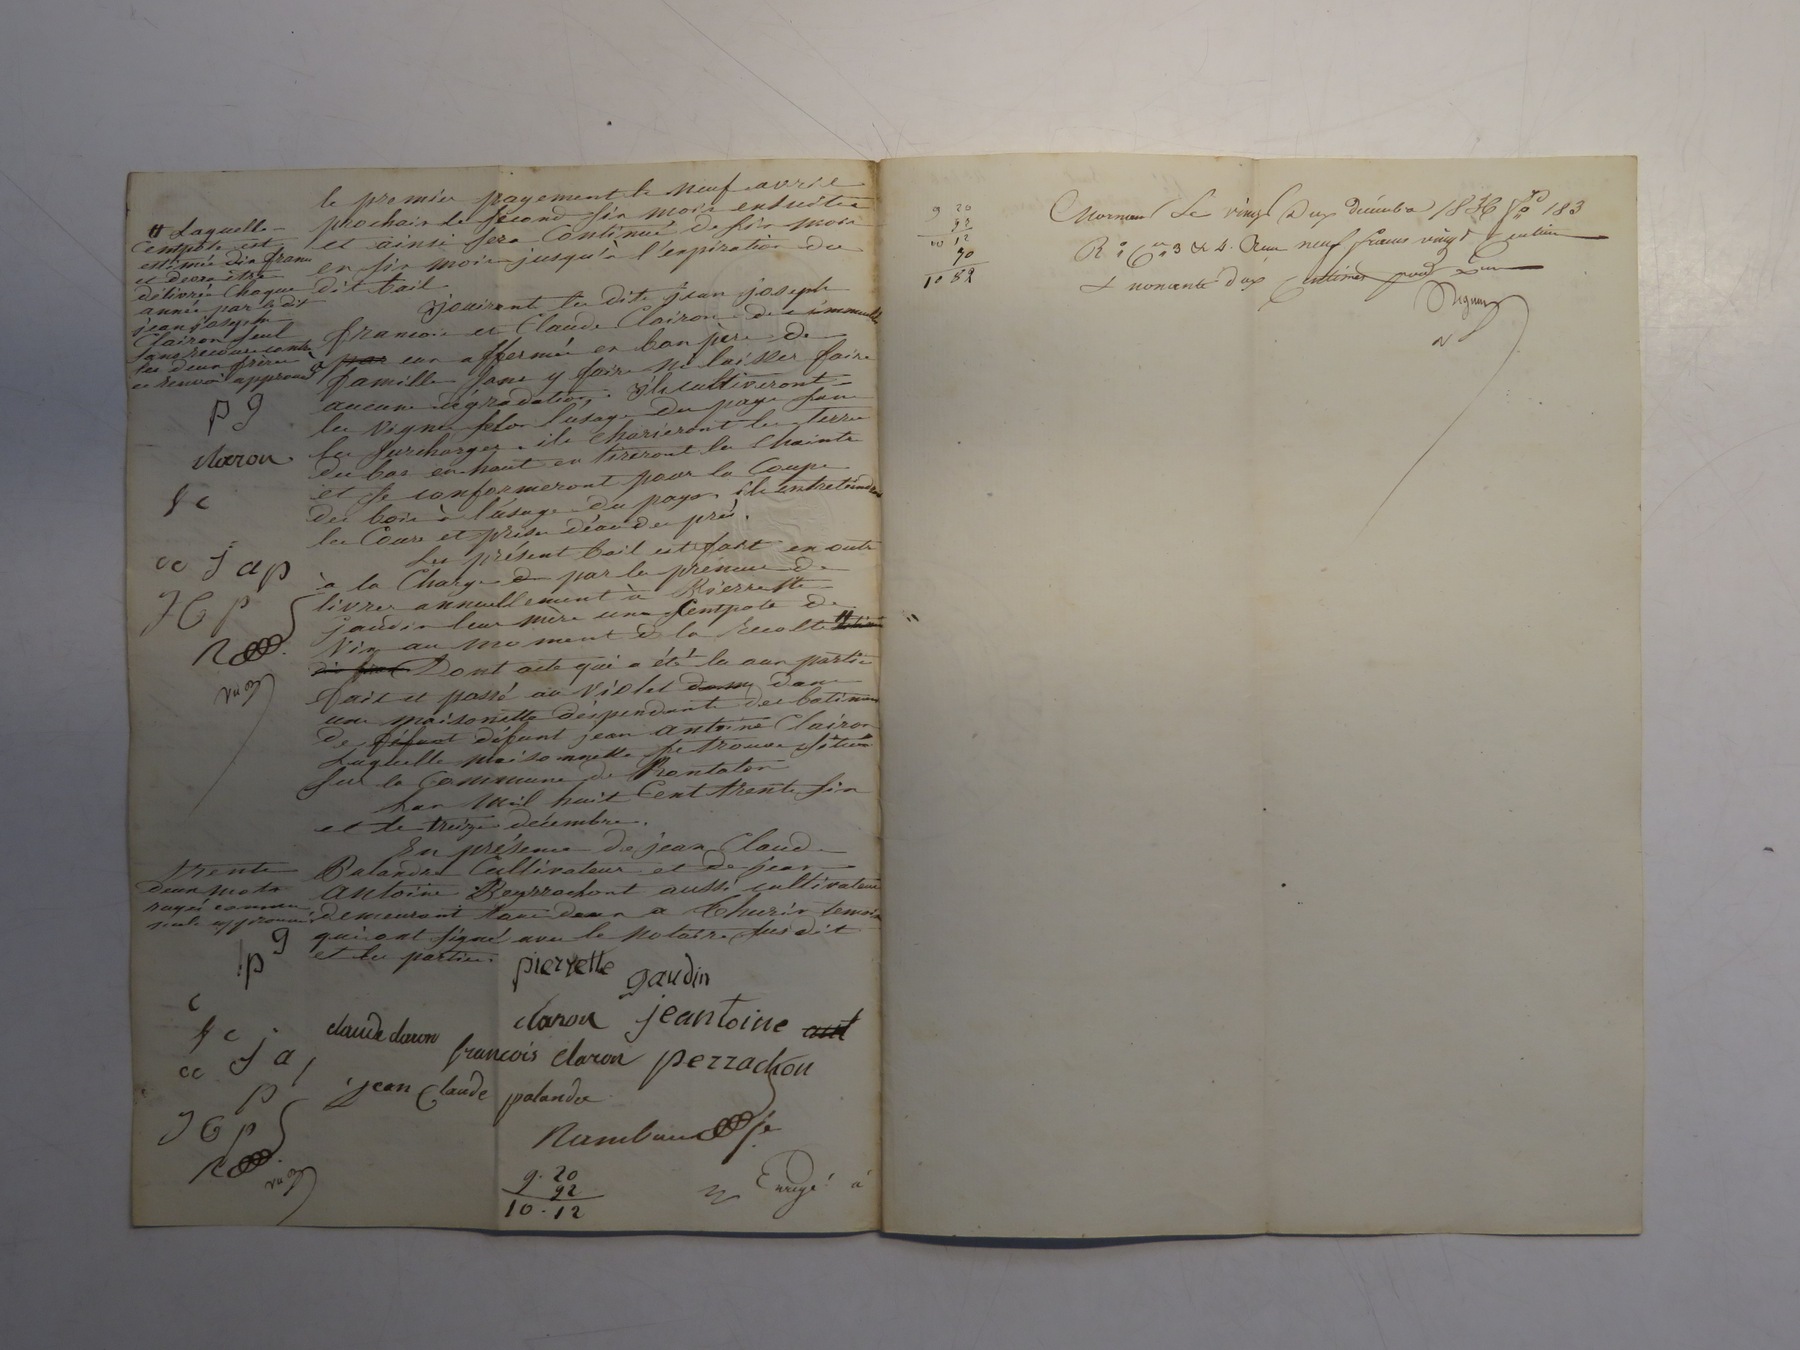 le premier payement le neuf avril
prochain le second six mois ensuite
et ainsi sera Continué de six mois
en six mois jusqu'à l'expiration du
dit bail
jouiront les dits jean joseph
francois et Claude Clairon des immeubles
par eux affermés en bon père de
famille sans y faire ni laisser faire
aucune dégradation, ils cultiveront
les vignes selon l'usage du pays sans
les surcharger, ils charieront les terres
du bas en haut en tireront la chainte
et se conformeront pour la Coupe
des bois à l'usage du pays, ils entretiendront
les Cours et prises d'eau des prés.
Le présent bail est fait en outre
à la Charge par les preneurs de
livrer annuellement à Pierrette
gaudin leur mère une Centpote de
vin au moment de la recolte #
Dont acte qui a été lu aux parties
fait et passé au Violet dans
une maisonette dépendante des batimens
de défunt jean antoine Clairon
Laquelle maisonnette se trouve située
sur la Commune de Rontalon
L'an Mil huit Cent trente six
et le treize décembre.
En présence de jean Claude
Palandre Cultivateur et de jean
antoine Peyrrachont aussi cultivateur
demeurant tous deux a Thurin temoins
qui ont signé avec le notaire susdit
et les parties.
# Laquelle
Centpote est
estimée dix francs
et devra être
délivrée Chaque
année par le dit
jean joseph
Clairon seul
sans recours contre
les deux frères
ce renvoi approuvé
p g
claron
f c
cc j a p
J C p
R
Trente
deux mots
rayés comme
nuls approuvés
p g
c
f c
cc j a
p
J C p
R
pierrette gaudin
claron jeantoine
claude claron francois claron perrachon
jean Claude palandre
9. 20
92
10. 12
Enregé à
9 20
92
10 12
70
10 82
Mornant Le vingt Deux décembre 1836 fo 183
Ro Ces 3 & 4. Reçu neuf francs vingt Centimes
& nonante deux Centimes pour